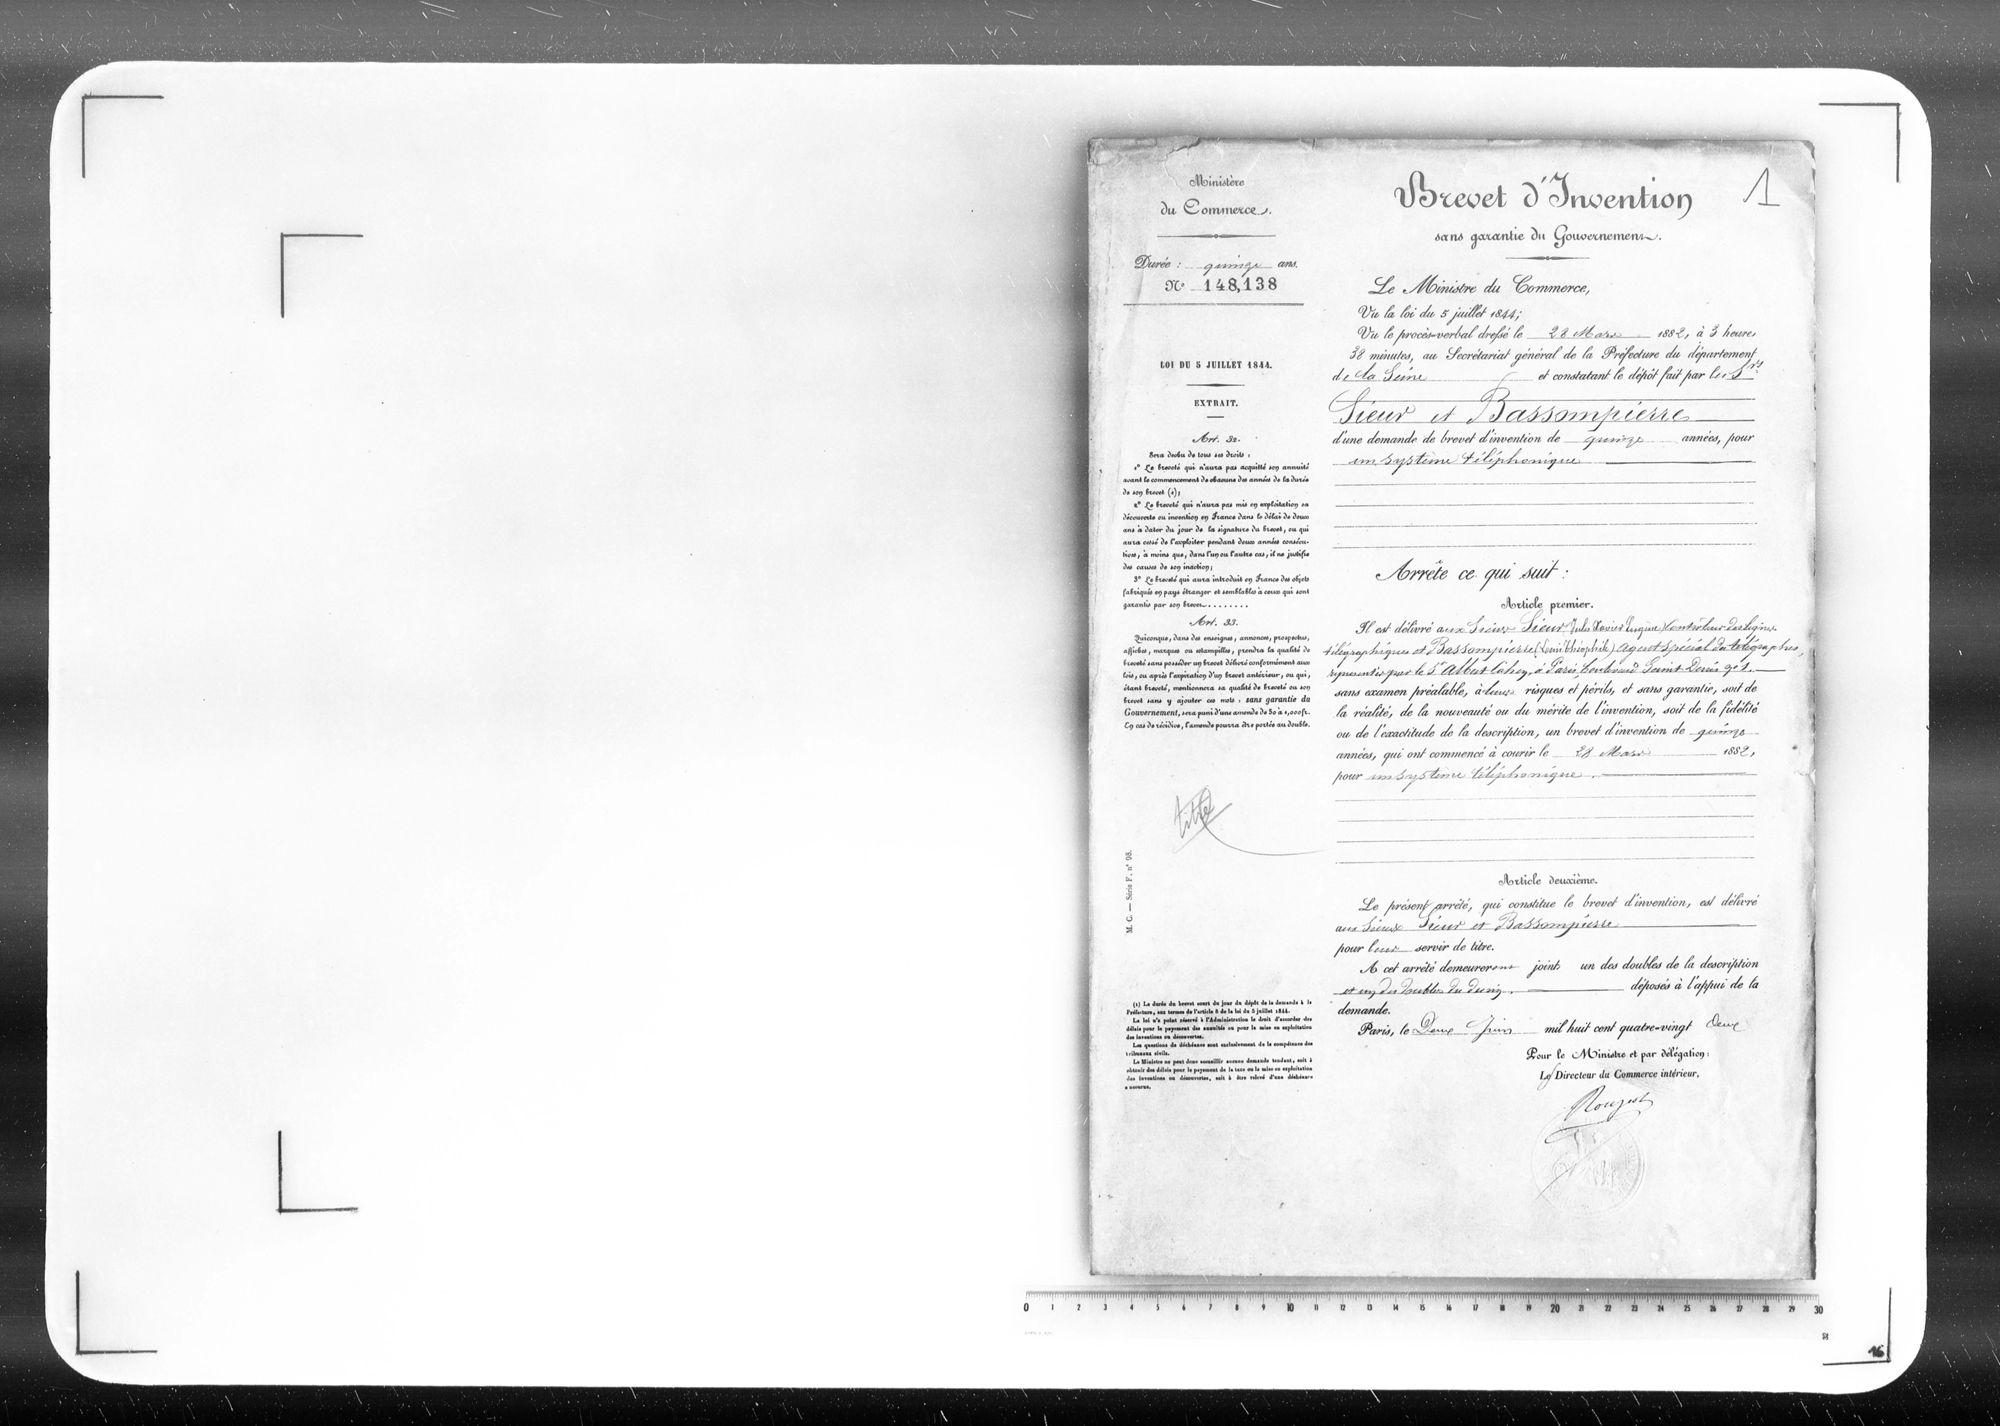 Ministère
du Commerce.
Durée : quinze ans.
No 148,138
LOI DU 5 JUILLET 1844.
EXTRAIT.
Art. 32.
Sera déchu de tous ses droits :
1° Le breveté qui n'aura pas acquitté son annuité
avant le commencement de chacune des années de la durée
de son brevet (1);
2° Le breveté qui n'aura pas mis en exploitation sa
découverte ou invention en France dans le délai de deux
ans à dater du jour de la signature du brevet, ou qui
aura cessé de l'exploiter pendant deux années consécu-
tives, à moins que, dans l'un ou l'autre cas, il ne justifie
des causes de son inaction;
3° Le breveté qui aura introduit en France des objets
fabriqués en pays étranger et semblables à ceux qui sont
garantis par son brevet........
Art. 33.
Quiconque, dans des enseignes, annonces, prospectus,
affiches, marques ou estampilles, prendra la qualité de
breveté sans posséder un brevet délivré conformément aux
lois, ou après l'expiration d'un brevet antérieur, ou qui,
étant breveté, mentionnera sa qualité de breveté ou son
brevet sans y ajouter ces mots : sans garantie du
Gouvernement, sera puni d'une amende de 50 à 1,000 fr.
En cas de récidive, l'amende pourra être portée au double.
titre
M. C. — Série F, n° 98.
(1) La durée du brevet court du jour du dépôt de la demande à la
Préfecture, aux termes de l'article 8 de la loi du 5 juillet 1844.
La loi n'a point réservé à l'Administration le droit d'accorder des
délais pour le payement des annuités ou pour la mise en exploitation
des inventions ou découvertes.
Les questions de déchéance sont exclusivement de la compétence des
tribunaux civils.
Le Ministre ne peut donc accueillir aucune demande tendant, soit à
obtenir des délais pour le payement de la taxe ou la mise en exploitation
des inventions ou découvertes, soit à être relevé d'une déchéance
encourue.
Brevet d'Invention
1
sans garantie du Gouvernement.
Le Ministre du Commerce,
Vu la loi du 5 juillet 1844;
Vu le procès-verbal dressé le 28 Mars 1882, à 3 heures
38 minutes, au Secrétariat général de la Préfecture du département
de la Seine et constatant le dépôt fait par les Srs
Sieur et Bassompierre
d'une demande de brevet d'invention de quinze années, pour
un système téléphonique
Arrête ce qui suit :
Article premier.
Il est délivré aux Sieurs Sieur (Jules Xavier Eugène) Contrôleur des lignes
télégraphiques et Bassompierre (Louis Théophile) agent spécial des télégraphes,
représentés par le Sr Albert Cahen, à Paris, boulevard Saint Denis n° 1.
sans examen préalable, à leurs risques et périls, et sans garantie, soit de
la réalité, de la nouveauté ou du mérite de l'invention, soit de la fidélité
ou de l'exactitude de la description, un brevet d'invention de quinze
années, qui ont commencé à courir le 28 Mars 1882,
pour un système téléphonique.
Article deuxième.
Le présent arrêté, qui constitue le brevet d'invention, est délivré
aux Sieurs Sieur et Bassompierre
pour leur servir de titre.
A cet arrêté demeureront joints un des doubles de la description
et un des doubles du dessin. déposés à l'appui de la
demande.
Paris, le Deux Juin mil huit cent quatre-vingt Deux
Pour le Ministre et par délégation :
Le Directeur du Commerce intérieur,
0 1 2 3 4 5 6 7 8 9 10 11 12 13 14 15 16 17 18 19 20 21 22 23 24 25 26 27 28 29 30
16